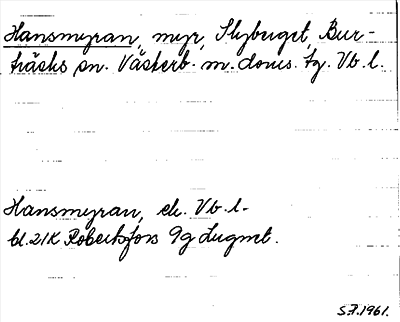 Hansmyran, myr, Flybuget, Bur-
träsks sn. Västerb. m. doms. tg. Vb. l.
Hansmyran, ek. Vb. l.
bl. 21K Robertsfors 9g Lugmt.
S.F. 1961.